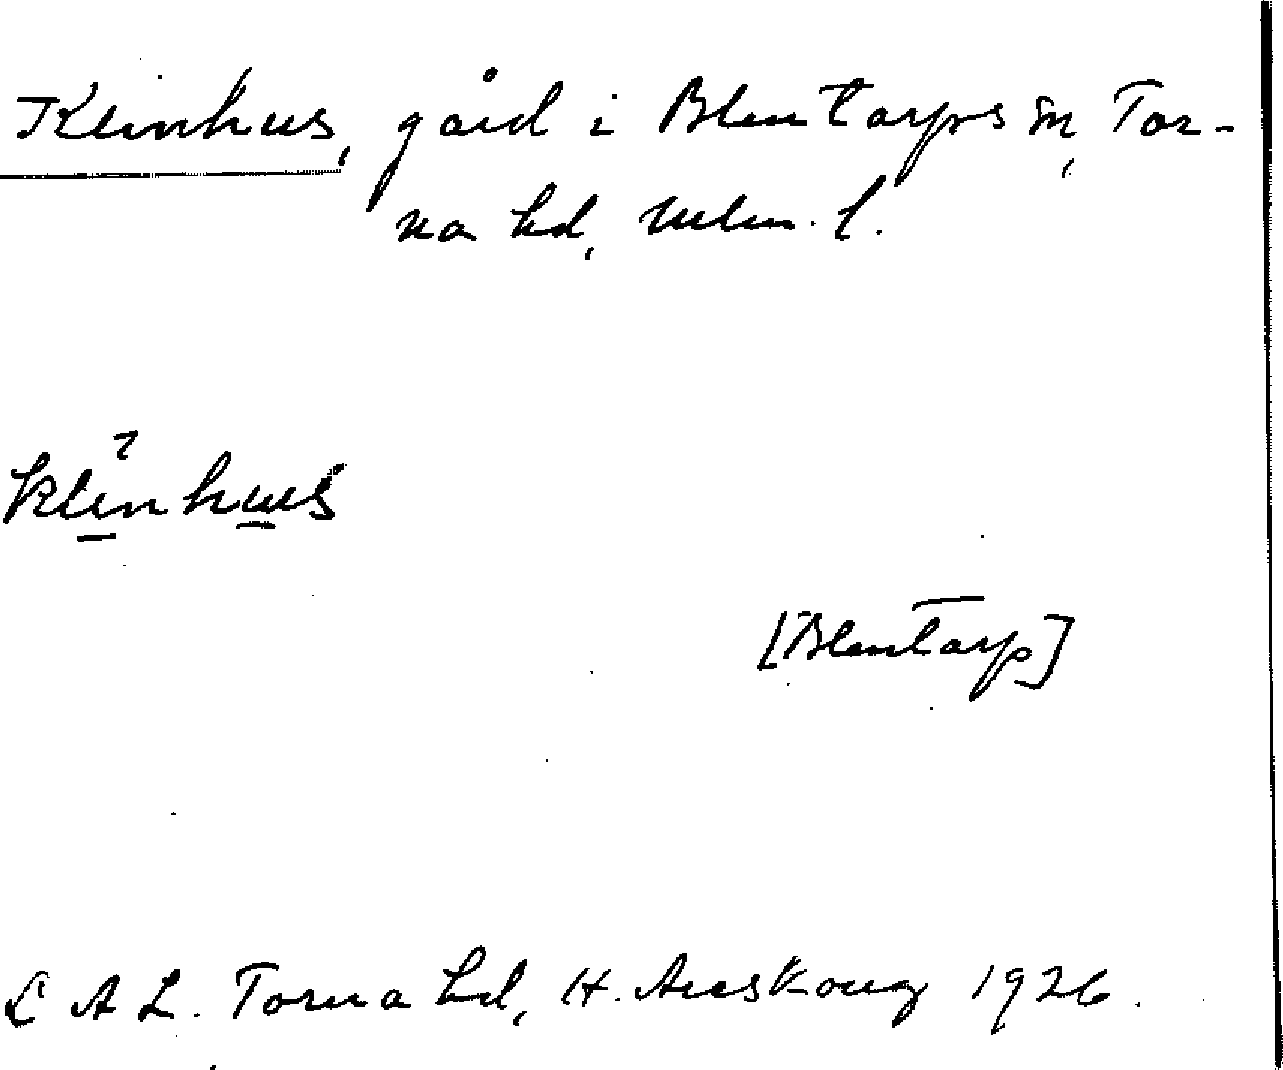 Klinhus, gård i Blentarps sn, Tor-
na hd, Mlm. l.
klinhus
[Blentarp]
L A L. Torna hd, H. 1926.